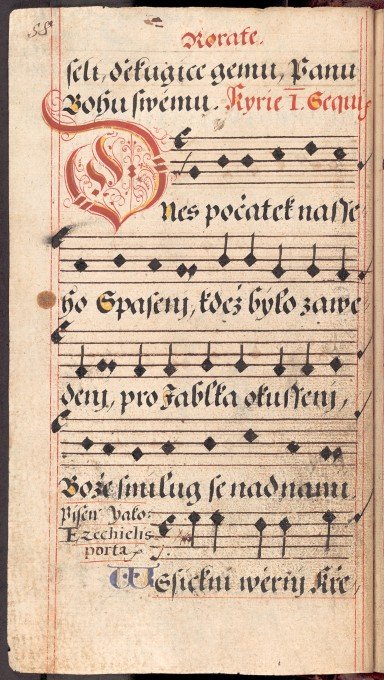 55.
Rorate.
seli, děkugice gemu, Panu
Bohu swému. Kyrie I. Sequi
Dnes počátek nasse
ho Spasenj, kdež bylo zawe
denj, pro Jablka okussenj,
Bože smilug se nad námi.
Pisen Yako:
Ezechielis
porta.
Wssickni wěrnj Kře